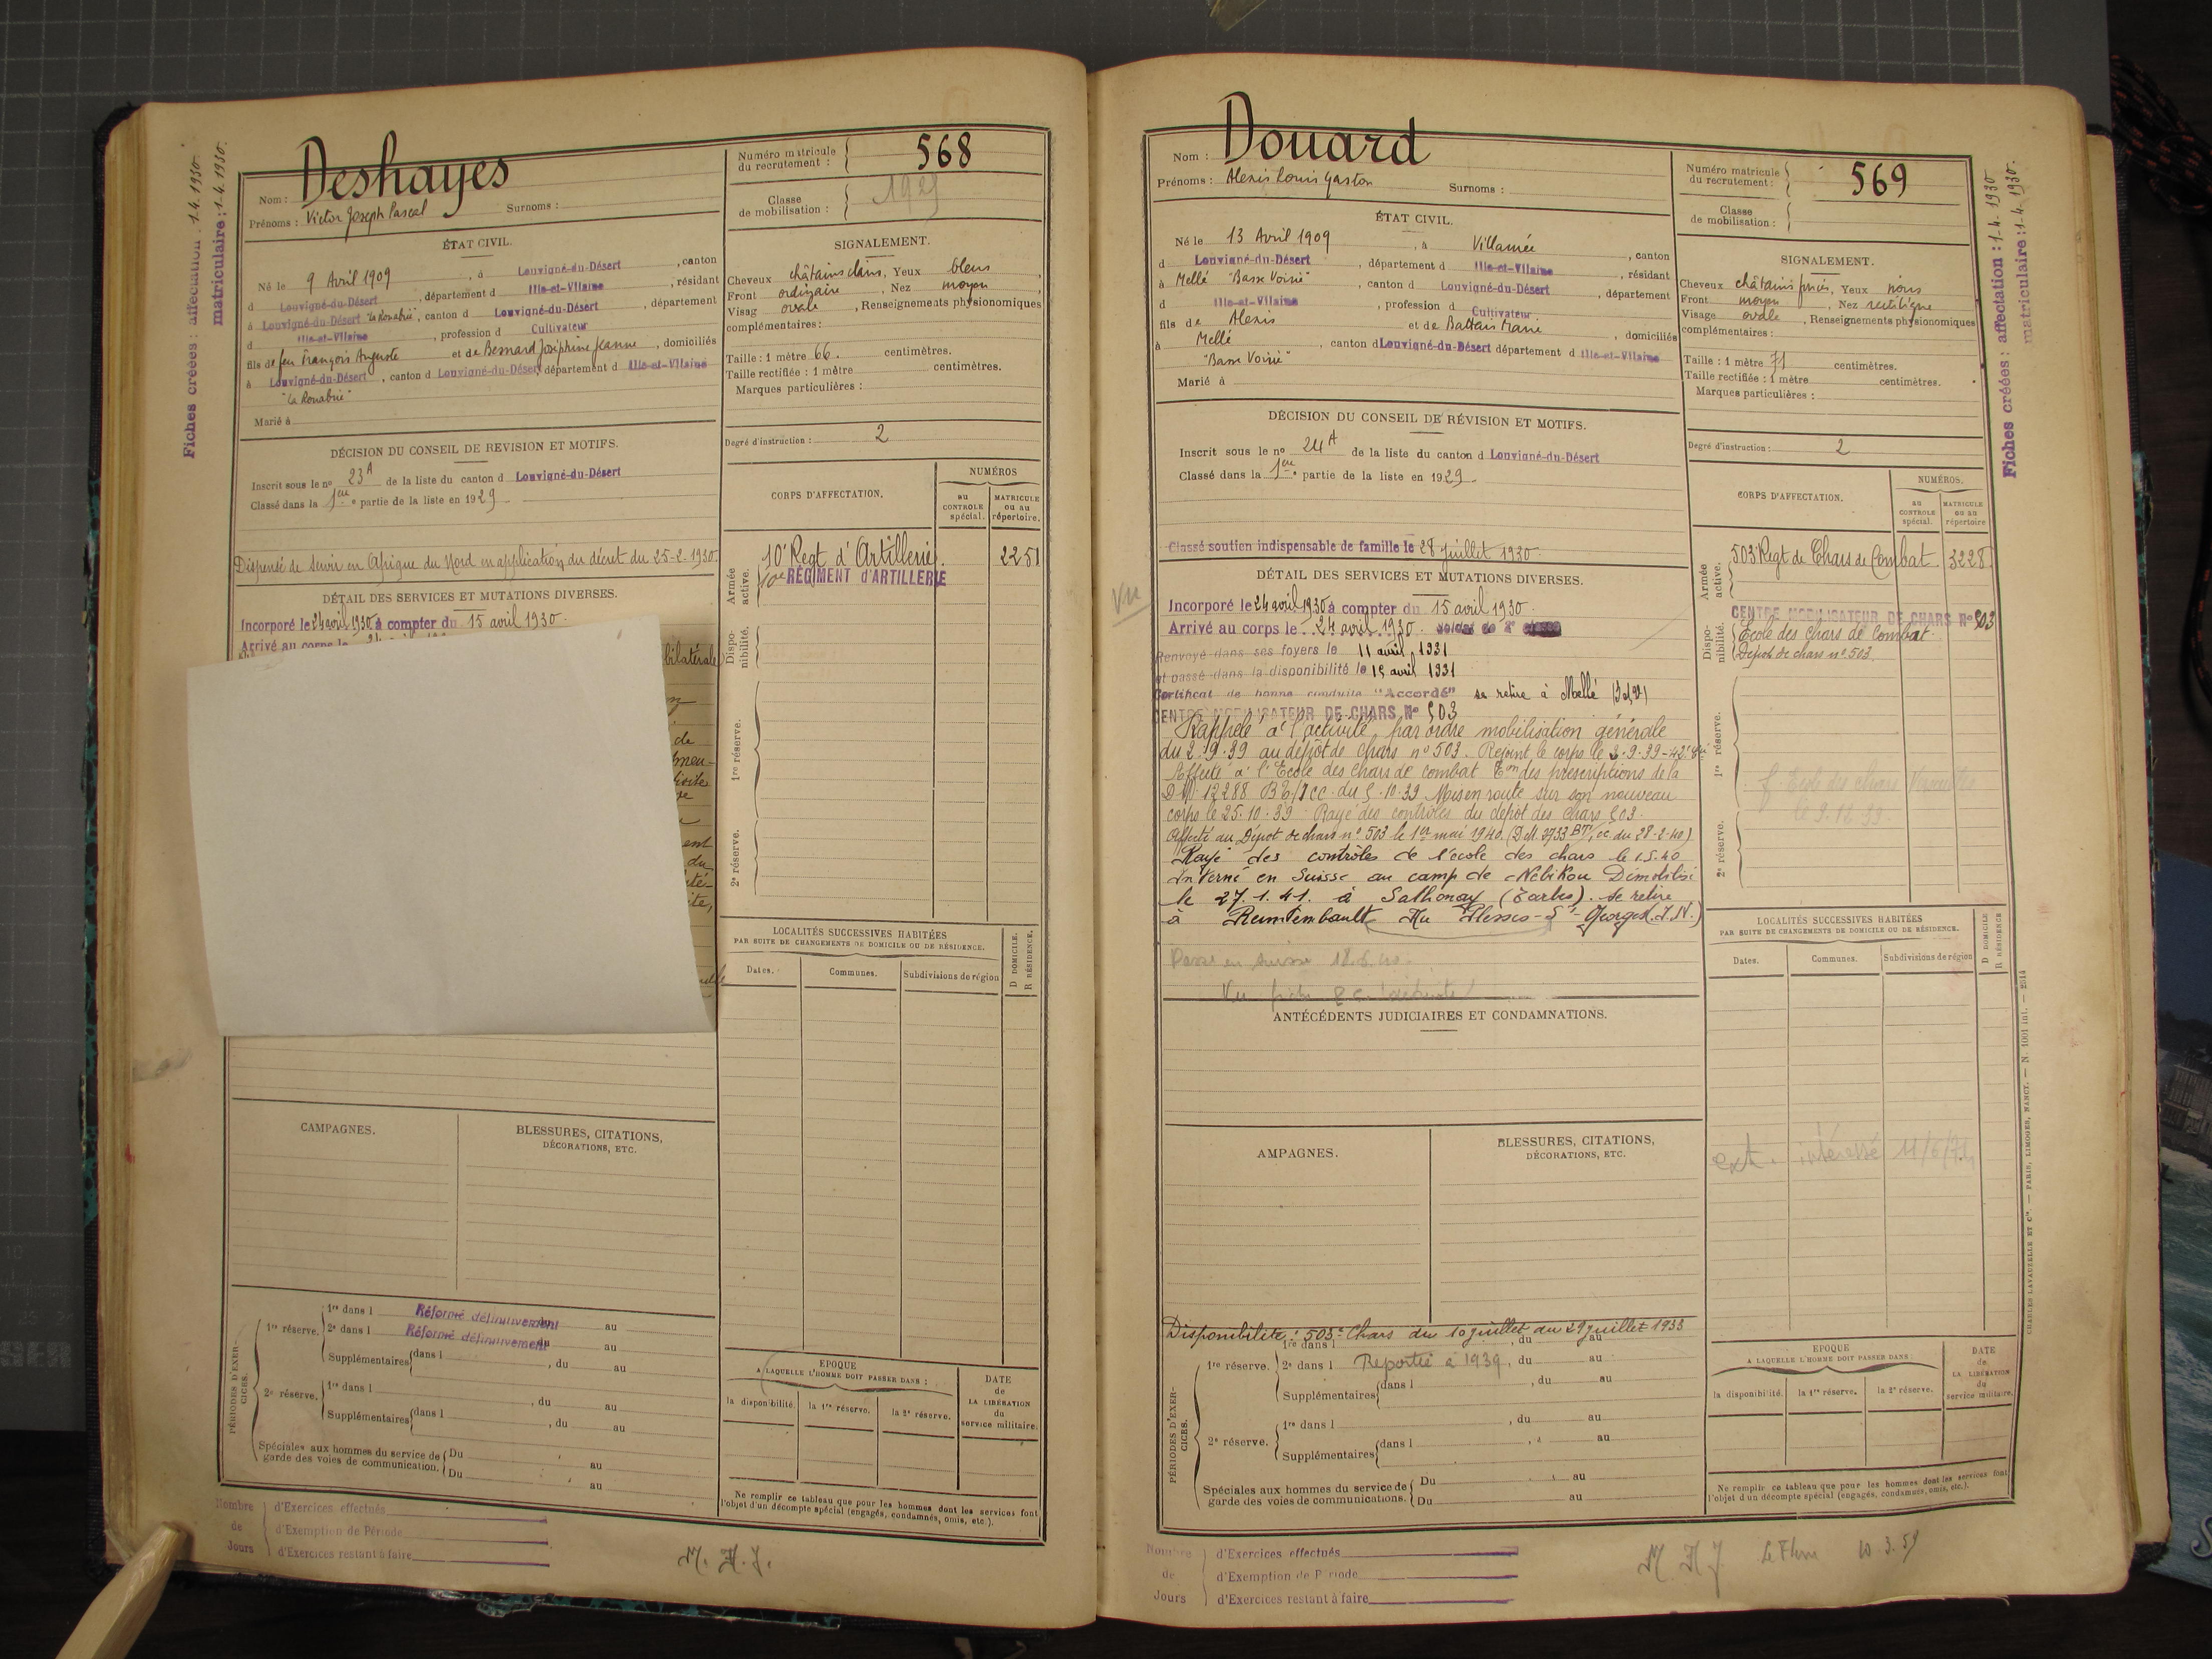 Fiches créées : affectation : 1.4.1930.
matriculaire : 1-4-1930.
Nom : Deshayes
Prénoms : Victor Joseph Pascal Surnoms :
Numéro matricule du recrutement : 568
Classe de mobilisation : 1929
ÉTAT CIVIL.
Né le 9 Avril 1909, à Louvigné-du-Désert, canton
d Louvigné-du-Désert, département d Ille-et-Vilaine, résidant
à Louvigné-du-Désert "La Ronabrie", canton d Louvigné-du-Désert, département
d Ille-et-Vilaine, profession d Cultivateur
fils de feu François Auguste et de Bernard Joséphine Jeanne, domiciliés
à Louvigné-du-Désert, canton d Louvigné-du-Désert département d Ille-et-Vilaine
"La Ronabrie"
Marié à
SIGNALEMENT.
Cheveux châtains clairs, Yeux bleus
Front ordinaire, Nez moyen
Visag ovale, Renseignements physionomiques
complémentaires :
Taille : 1 mètre 66. centimètres.
Taille rectifiée : 1 mètre centimètres.
Marques particulières :
Degré d'instruction : 2
DÉCISION DU CONSEIL DE REVISION ET MOTIFS.
Inscrit sous le n° 23A de la liste du canton d Louvigné-du-Désert
Classé dans la 1ere partie de la liste en 1929
Dispensé de servir en Afrique du Nord en application du décret du 25-2-1930.
DÉTAIL DES SERVICES ET MUTATIONS DIVERSES.
Incorporé le 24 avril 1930 à compter du 15 avril 1930.
Arrivé au corps le
bilatérale
de
du
CORPS D'AFFECTATION.
NUMÉROS
au CONTROLE spécial.
MATRICULE ou au répertoire.
Armée active.
10e Regt d'Artillerie 2251
10e RÉGIMENT d'ARTILLERIE
Disponibilité.
1re réserve.
2e réserve.
LOCALITÉS SUCCESSIVES HABITÉES
PAR SUITE DE CHANGEMENTS DE DOMICILE OU DE RÉSIDENCE.
Dates. Communes. Subdivisions de région
D DOMICILE.
R RÉSIDENCE.
CAMPAGNES.
BLESSURES, CITATIONS,
DÉCORATIONS, ETC.
PÉRIODES D'EXERCICES.
1re réserve.
1re dans l Réformé définitivement au
2e dans l Réformé définitivement au
Supplémentaires dans l , du au
2e réserve.
1re dans l , du au
Supplémentaires dans l , du au
Spéciales aux hommes du service de
garde des voies de communication.
Du au
Du au
EPOQUE
A LAQUELLE L'HOMME DOIT PASSER DANS :
la disponibilité. la 1re réserve. la 2e réserve.
DATE de LA LIBÉRATION du service militaire.
Ne remplir ce tableau que pour les hommes dont les services font
l'objet d'un décompte spécial (engagés, condamnés, omis, etc.).
Nombre de Jours
d'Exercices effectués
d'Exemption de Période
d'Exercices restant à faire
Nom : Douard
Prénoms : Alexis Louis Gaston Surnoms :
Numéro matricule du recrutement : 569
Classe de mobilisation :
Fiches créées : affectation : 1-4-1930
matriculaire : 1-4-1930.
ÉTAT CIVIL.
Né le 13 Avril 1909, à Villamée, canton
d Louvigné-du-Désert, département d Ille-et-Vilaine, résidant
à Mellé "Basse Voirie", canton d Louvigné-du-Désert, département
d Ille-et-Vilaine, profession d Cultivateur
fils de Alexis et de Battais Marie, domiciliés
à Mellé, canton d Louvigné-du-Désert département d Ille-et-Vilaine
"Basse Voirie"
Marié à
SIGNALEMENT.
Cheveux châtains foncés, Yeux noirs
Front moyen, Nez rectiligne
Visage ovale, Renseignements physionomiques
complémentaires :
Taille : 1 mètre 71 centimètres.
Taille rectifiée : 1 mètre centimètres.
Marques particulières :
Degré d'instruction : 2
DÉCISION DU CONSEIL DE RÉVISION ET MOTIFS.
Inscrit sous le n° 24A de la liste du canton d Louvigné-du-Désert
Classé dans la 1ere partie de la liste en 1929.
Classé soutien indispensable de famille le 28 juillet 1930.
DÉTAIL DES SERVICES ET MUTATIONS DIVERSES.
Vu
Incorporé le 24 avril 1930 à compter du 15 avril 1930.
Arrivé au corps le 24 avril 1930. soldat de 2e classe
Renvoyé dans ses foyers le 11 avril 1931
et passé dans la disponibilité le 15 avril 1931
Certificat de bonne conduite "Accordé" se retire à Mellé (I et V)
CENTRE MOBILISATEUR DE CHARS N° 503
Rappelé à l'activité par ordre mobilisation générale
du 2.9.39 au dépôt de chars n° 503. Rejoint le corps le 3.9.39
Affecté à l'Ecole des Chars de combat Con des prescriptions de la
DM 12288 BT/1cc. du 5.10.39 Mis en route sur son nouveau
corps le 25.10.39. Rayé des contrôles du dépôt des chars 503.
Affecté au Dépôt de chars n° 503 le 1er mai 1940. (D.M. 3733 BT/cc du 28-2-40)
Rayé des contrôles de l'école des chars le 1.5.40
Interné en Suisse au camp de Nebikon Démobilisé
le 27.1.41. à Sathonay (Tarbes). se retire
à Reintembault Au Plessis-St-Georges (I.V.)
Passé en Suisse 18.6.40.
Vu fiche
ANTÉCÉDENTS JUDICIAIRES ET CONDAMNATIONS.
CORPS D'AFFECTATION.
NUMÉROS.
au CONTROLE spécial.
MATRICULE ou au répertoire
Armée active.
503 Regt de Chars de Combat 3228
CENTRE MOBILISATEUR DE CHARS N° 503
Disponibilité.
Ecole des Chars de Combat.
Dépôt de chars n° 503
1re réserve.
Ecole des chars
le 9.12.39.
2e réserve.
LOCALITÉS SUCCESSIVES HABITÉES
PAR SUITE DE CHANGEMENTS DE DOMICILE OU DE RÉSIDENCE.
Dates. Communes. Subdivisions de région
D DOMICILE
R RÉSIDENCE
ext. intéressé 11/6/71
AMPAGNES.
BLESSURES, CITATIONS,
DÉCORATIONS, ETC.
Disponibilité : 503e Chars du 10 juillet au 29 juillet 1933
PÉRIODES D'EXERCICES.
1re réserve.
1re dans l , du au
2e dans l Reporté à 1939, du au
Supplémentaires dans l , du au
2e réserve.
1re dans l , du au
Supplémentaires dans l au
Spéciales aux hommes du service de
garde des voies de communications.
Du au
Du au
EPOQUE
A LAQUELLE L'HOMME DOIT PASSER DANS :
la disponibilité. la 1re réserve. la 2e réserve.
DATE de LA LIBÉRATION du service militaire.
Ne remplir ce tableau que pour les hommes dont les services font
l'objet d'un décompte spécial (engagés, condamnés, omis, etc.).
CHARLES-LAVAUZELLE ET Cie. — PARIS, LIMOGES, NANCY. — N. 1001 int. — 2514
Nombre de Jours
d'Exercices effectués
d'Exemption de P riode
d'Exercices restant à faire
10.3.59